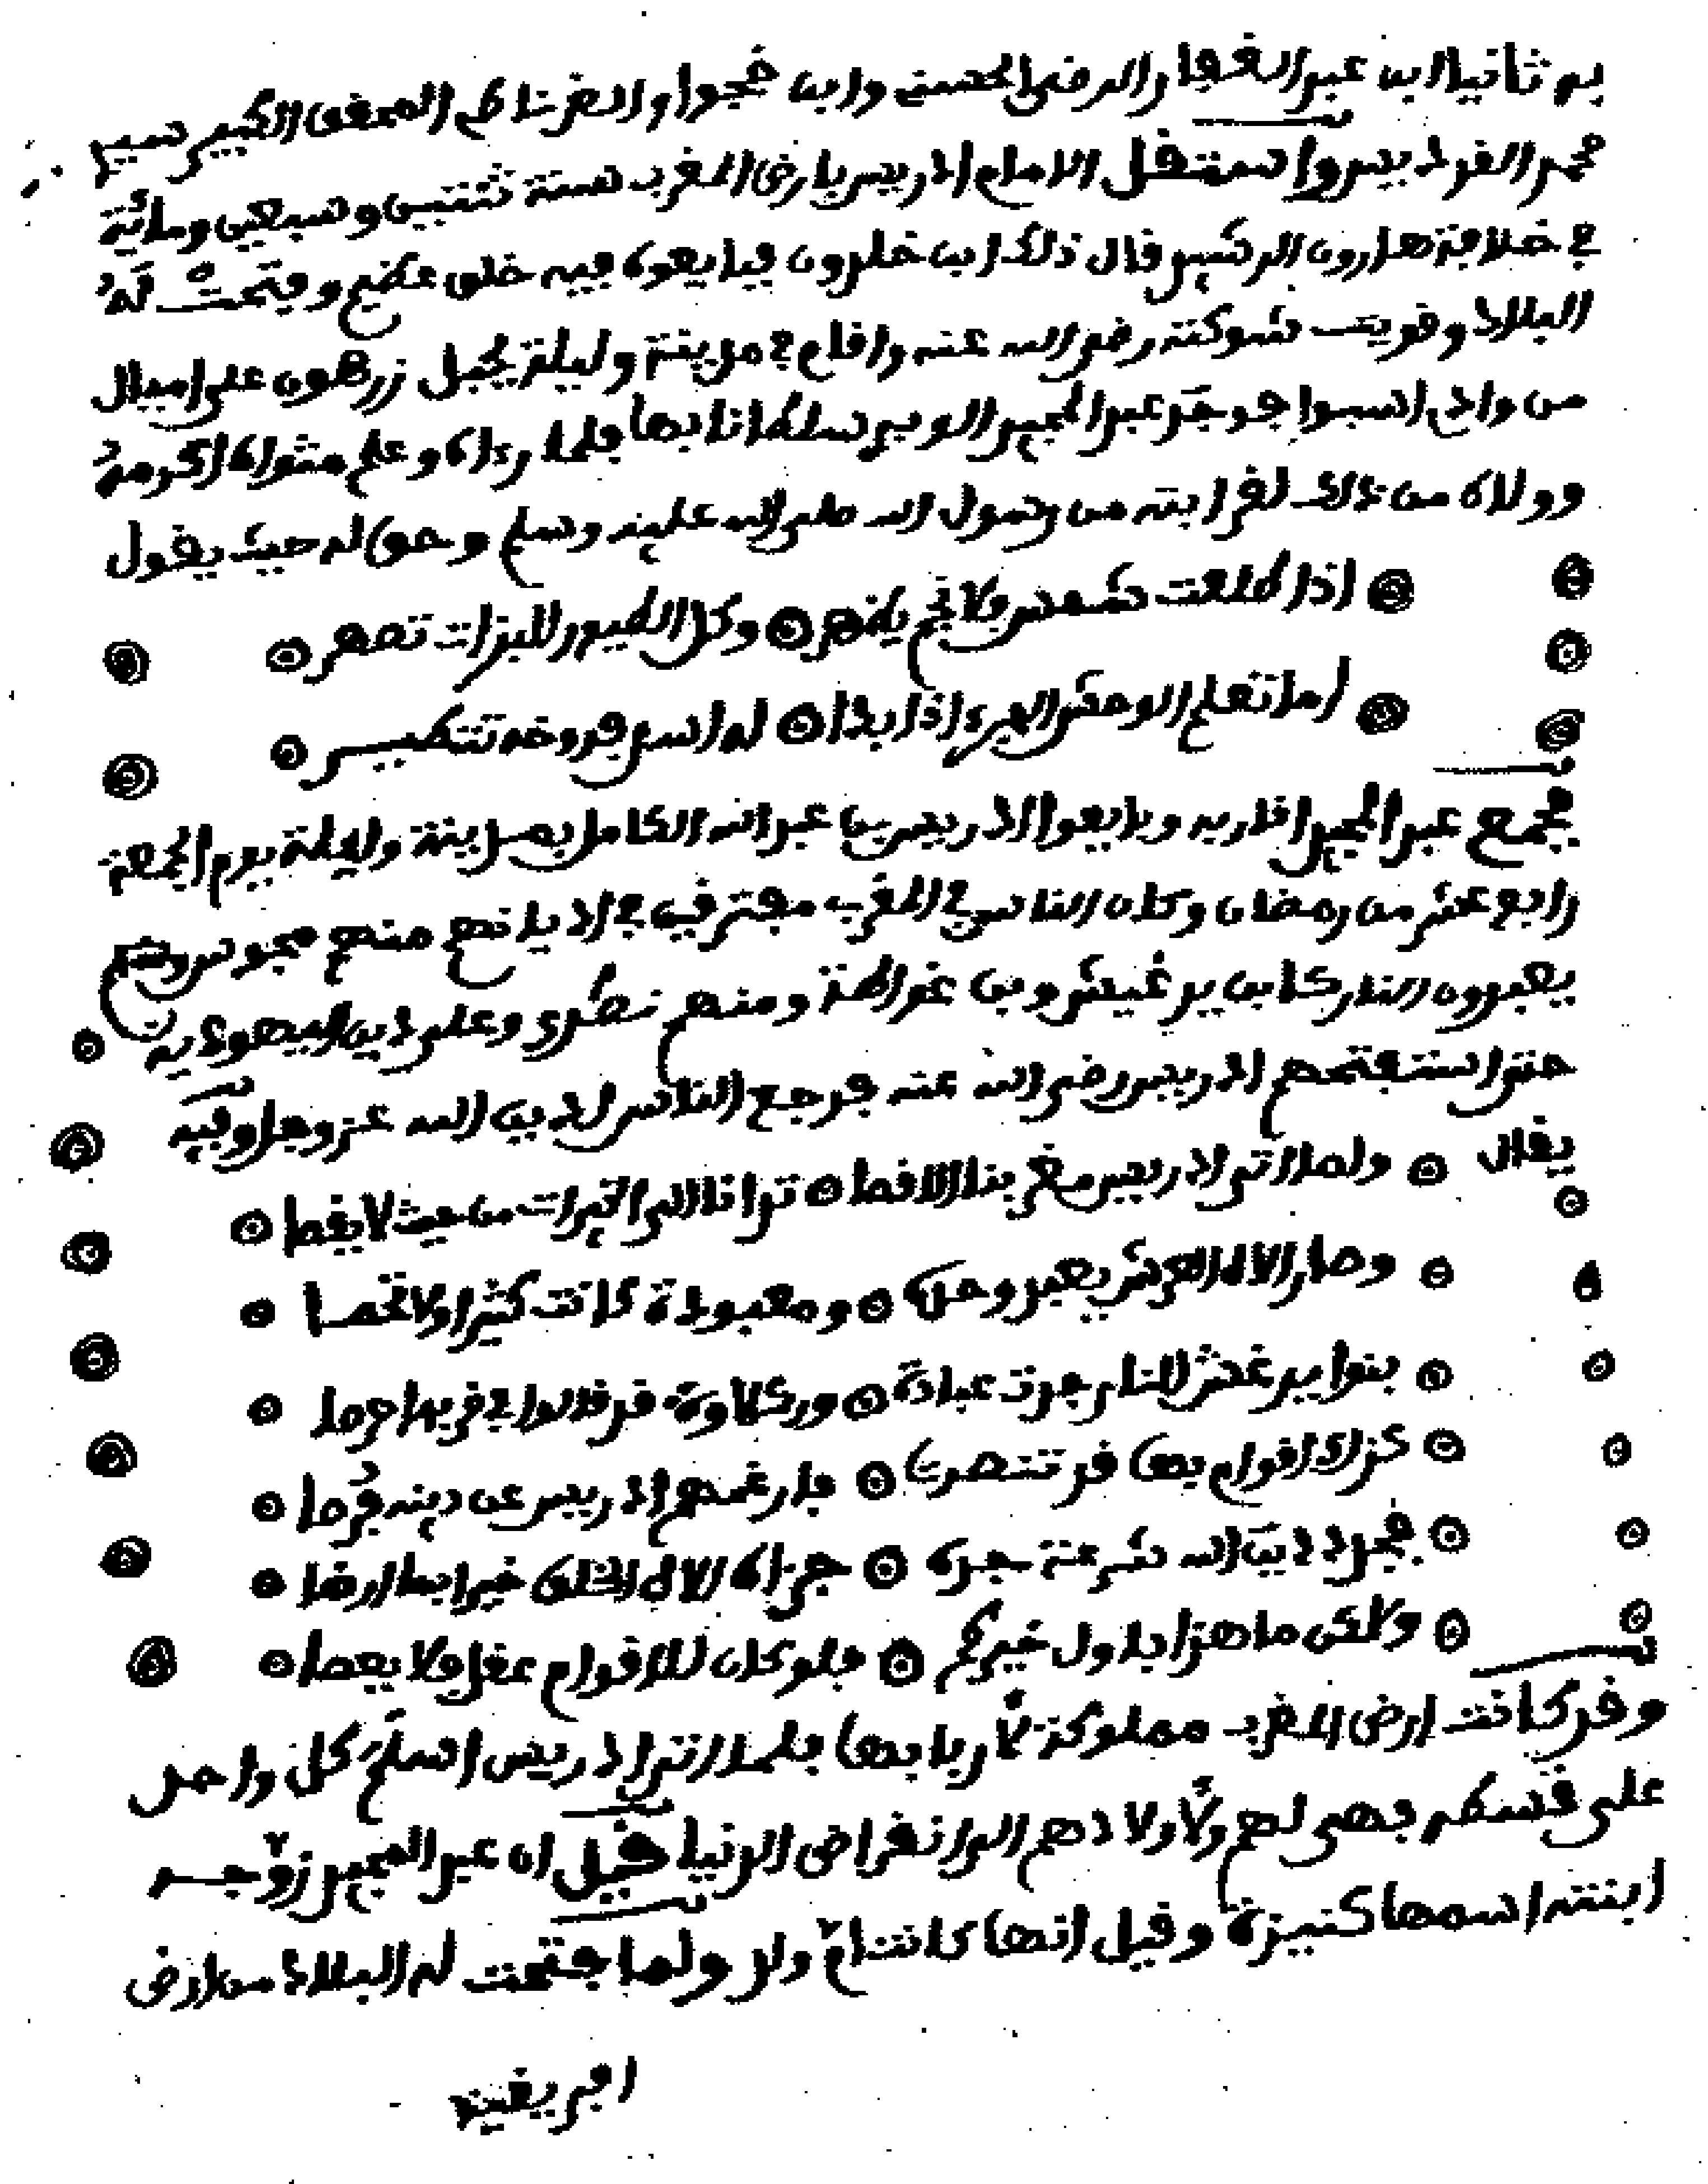 به ثانيا ابن عبد الغفار الرضى الحسني وابن حجوا والغرناطي المحقق الكبير سيد
محمد الفرديس واستقل الامام ادريس بارض المغرب سنة ثنتين وسبعين ومائة
في خلافة هارون الرشيد قال ذلك ابن خلدون فبايعوه فيه خلق عظيم وفتحت له
البلاد وقويت شوكته رضي الله عنه واقام في مدينة وليلة بجبل زرهون على اميال
من وادي اسبوا فوجد عبد المجيد الوبي سلطانا بها فلما رءاه وعلم مثواه اكرمه
وولاه من ذلك لقرابته من رسول الله صلى الله عليه وسلم وحق له حيث يقول
اذا طلعت شمس فلا نجم يظهر وكل الطيور للبزات تصفر
اما تعلم الوحش البرء اذا بدا له اسد قد وخه تتكبير
فجمع عبد المجيد اقاربه وبايعوا ادريس بن عبد الله الكامل بمدينة وليلة يوم الجمعة
رابع عشر من رمضان وكان الناس في المغرب مفترقين في اديانهم منهم مجوس وهم
يعبدون النار كابن يرغيش وبن غواطة ومنهم نصرى وعلى دين اليهودية
حتى استفتحهم ادريس رضي الله عنه فرجع الناس لدين الله عز وجل وفيه
يقال ولما اتى ادريس مغربنا الاقصا توانا الى الخيرات من حيث لا يقصا
وصار الاه العرش يعبد وحده ومعبودة كانت كثيرا ولا تحصا
بنوا يرغش للنار جرت عبادة وركلاوة قد قالوا في قربها حرصا
كذاك اقوام بها قد تنصرت فارغمهم ادريس عن دينه قرصا
فجدد دين الله شرعة جده جزاه الاه الخلق خيرا بما ارضا
ولاكن ما هذا باول خيركم فلو كان للاقوام عقل فلا يعصا
وقد كانت ارض المغرب مملوكة لأربابها فلما اتى ادريس اسلم كل واحد
على قسطه فهى لهم ولأولادهم الى انقراض الدنيا قيل ان عبد المجيد زوجه
ابنته اسمها كنيزة وقيل انها كانت ام ولد ولما فتحت له البلاد من ارض
افريقية